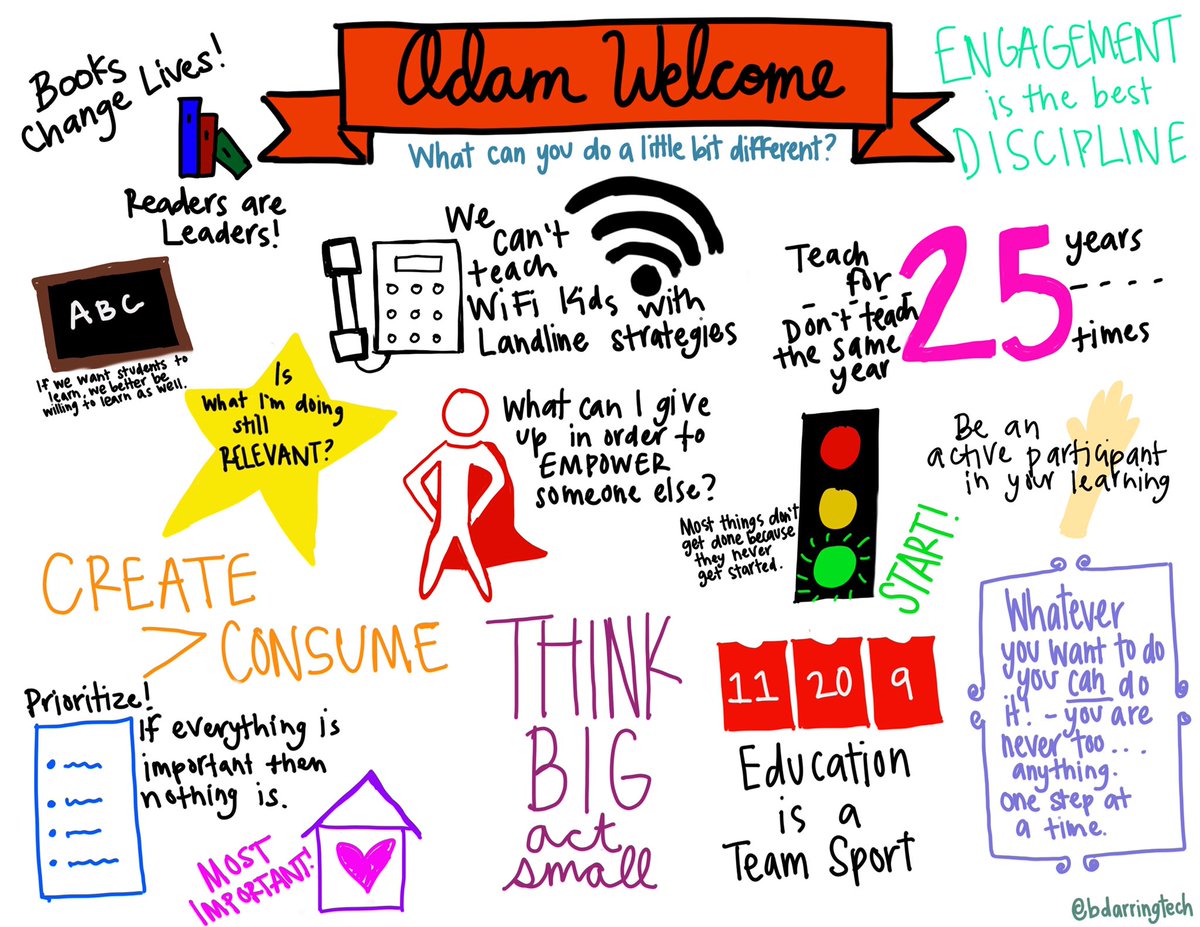 Books
Change Lives!
Readers are
Leaders!
Adam Welcome
What can you do a little bit different?
ENGAGEMENT
is the best
DISCIPLINE
A B C
If we want students to
learn, we better be
willing to learn as well.
We
can't
teach
WiFi Kids with
Landline strategies
Teach
for
25
years
Don't teach
the same
year
times
Is
What I'm doing
still
RELEVANT?
What can I give
up in order to
EMPOWER
someone else?
Most things don't
get done because
they never
get started.
START!
Be an
active participant
in your learning
CREATE
> CONSUME
THINK
BIG
act
small
11 20 9
Education
is a
Team Sport
Whatever
you want to do
you can do
it! - you are
never too...
anything.
one step at
a time.
Prioritize!
If everything is
important then
nothing is.
MOST
IMPORTANT!
@bdarringtech